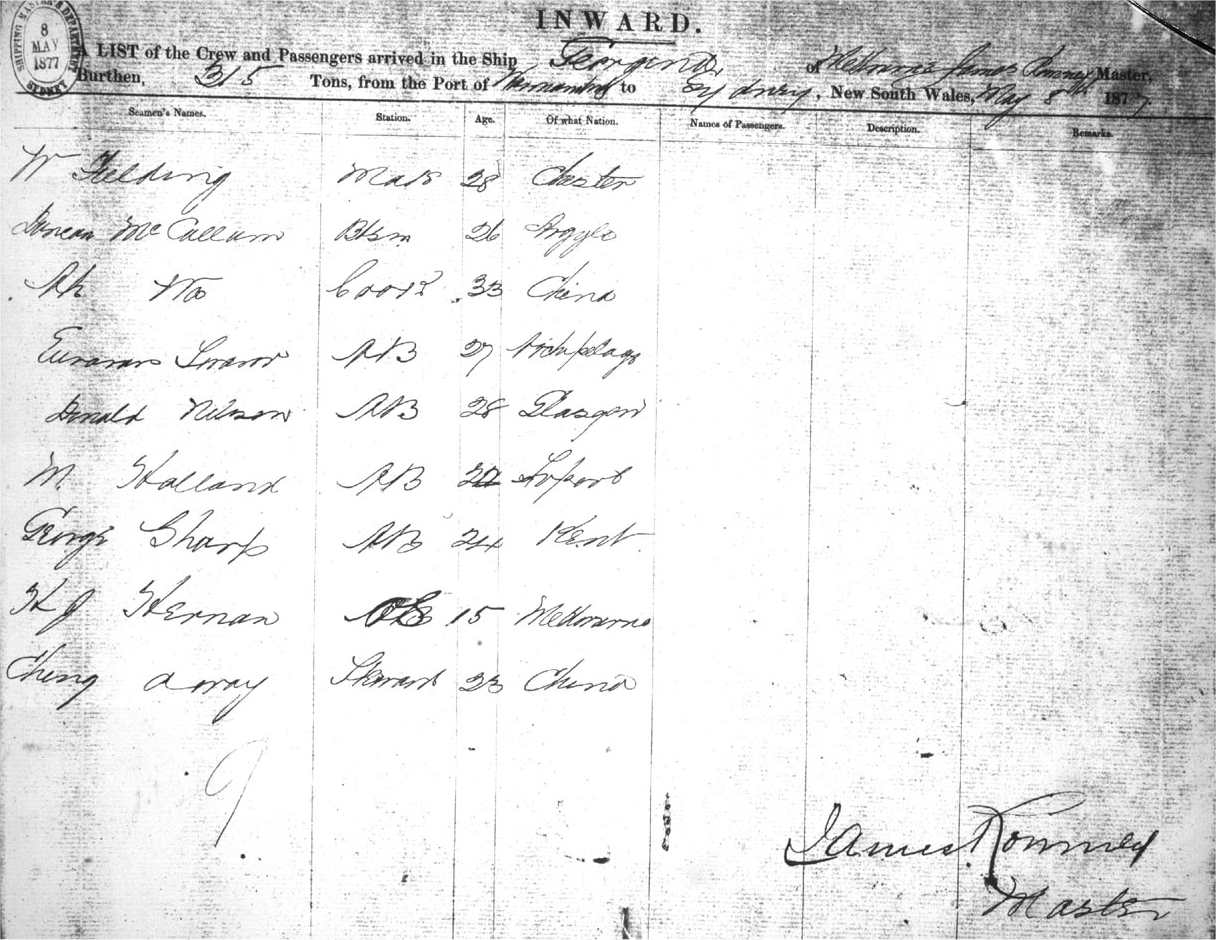 SHIPPING MASTER'S DEPARTMENT
8
MAY
1877
SYDNEY
INWARD.
A LIST of the Crew and Passengers arrived in the Ship Georgina of Melbourne James Master,
Burthen, 315 Tons, from the Port of to Sydney, New South Wales, May 8th 1877
Seamen's Names. Station. Age. Of what Nation. Names of Passengers. Description. Remarks.
W Fielding Mate 28 Chester
Duncan McCallum Btsm 26 Argyle
Ah Cook 33 China
AB 27 Archipelago
Donald Nilson AB 28 Glasgow
M. Holland AB
George Sharp AB 24 Kent
H J Hernan 15 Melbourne
Ching away Steward 23 China
9
James
Master